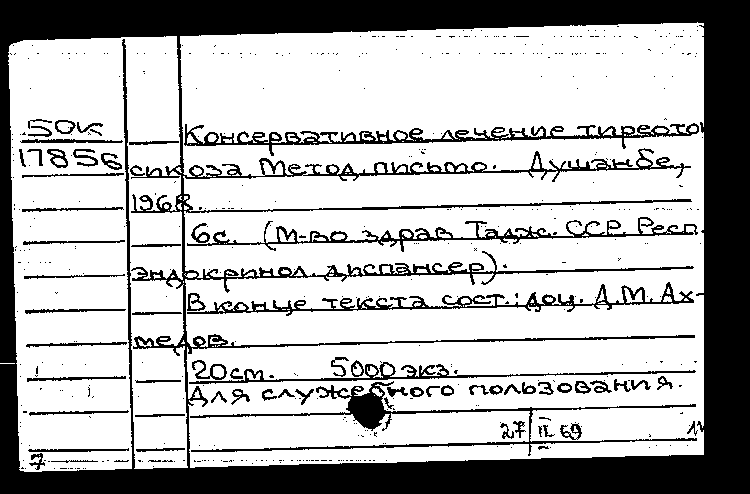 50к
17856
Консервативное лечение тиреото
сикоза. Метод. письмо. Душанбе,
1968.
6с. (М-во здрав Тадж. ССР. Респ.
эндокринол. диспансер).
В конце текста сост.: доц. Д.М. Ах-
медов.
20см. 5000 экз.
Для служебного пользования.
27/II 69
7